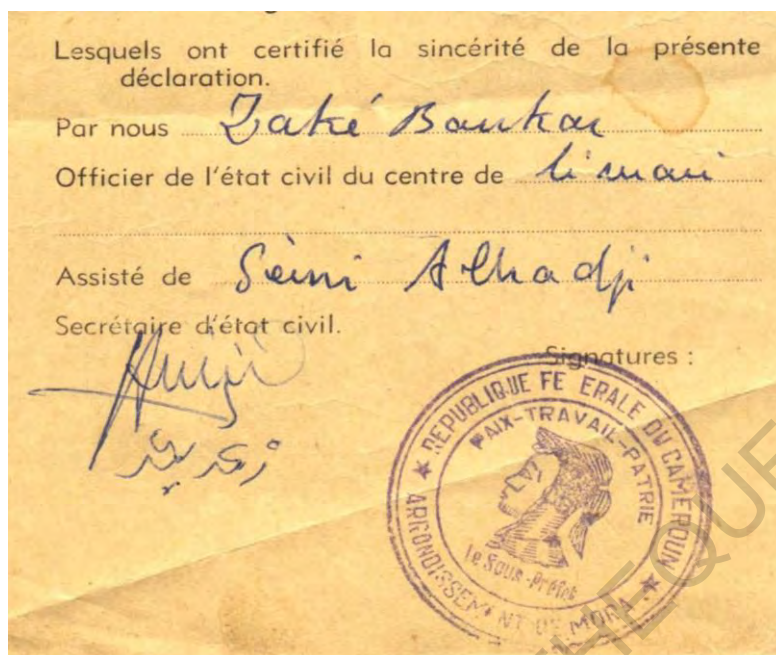 Lesquels ont certifié la sincérité de la présente
déclaration.
Par nous Zaké Boukar
Officier de l'état civil du centre de limani
Assisté de Seini Alhadji
Secrétaire d'état civil.
Signatures :
REPUBLIQUE FE ERALE DU CAMEROUN
PAIX-TRAVAIL-PATRIE
Le Sous-Préfet
ARRONDISSEM NT DE MORA
THEQUE